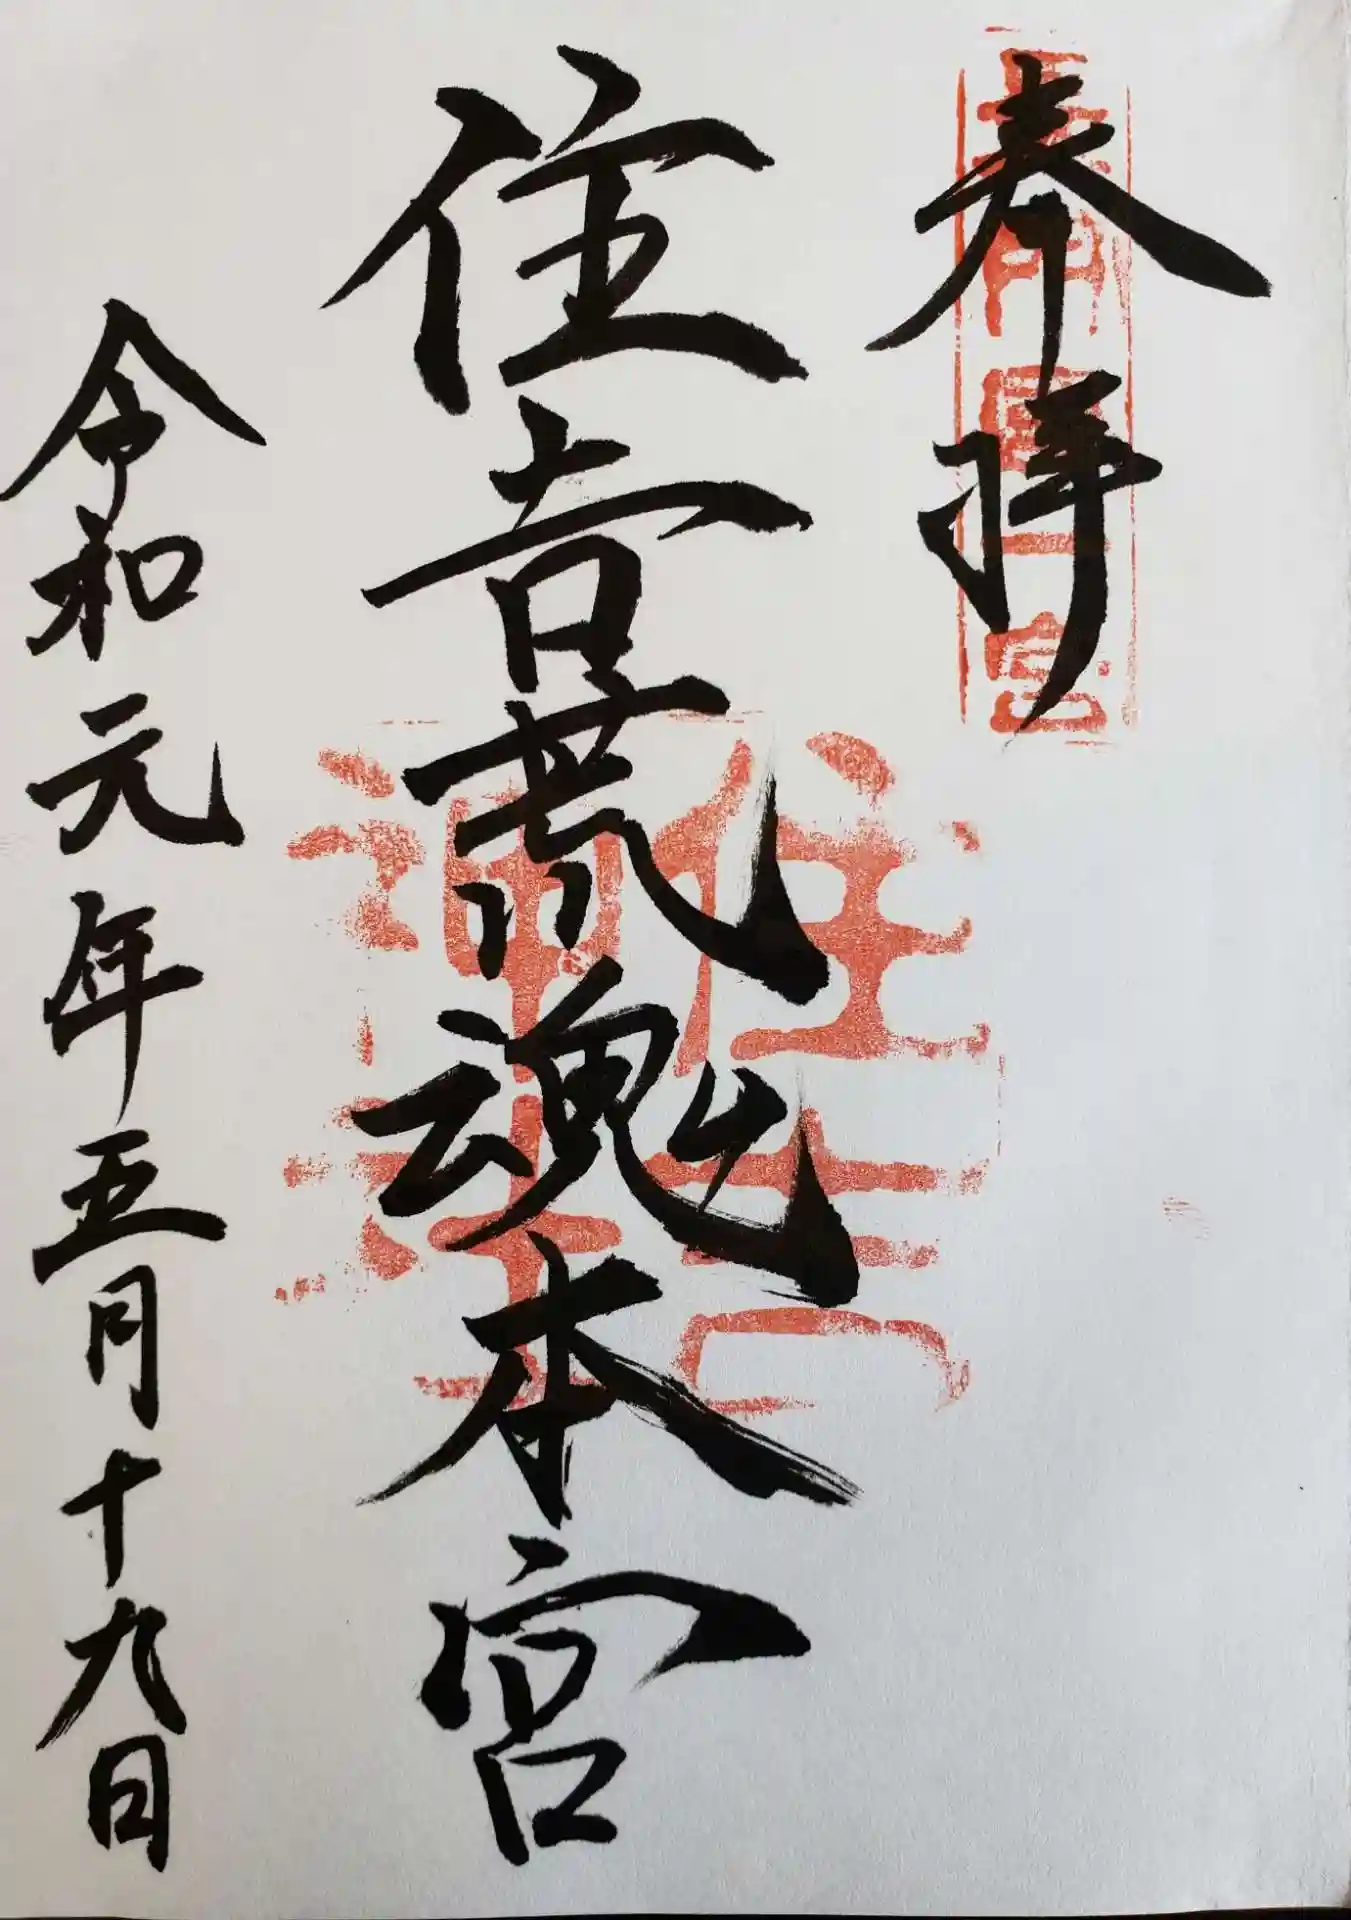 奉拝
長門國一宮
住吉荒魂本宮
住吉神社
令和元年五月十九日